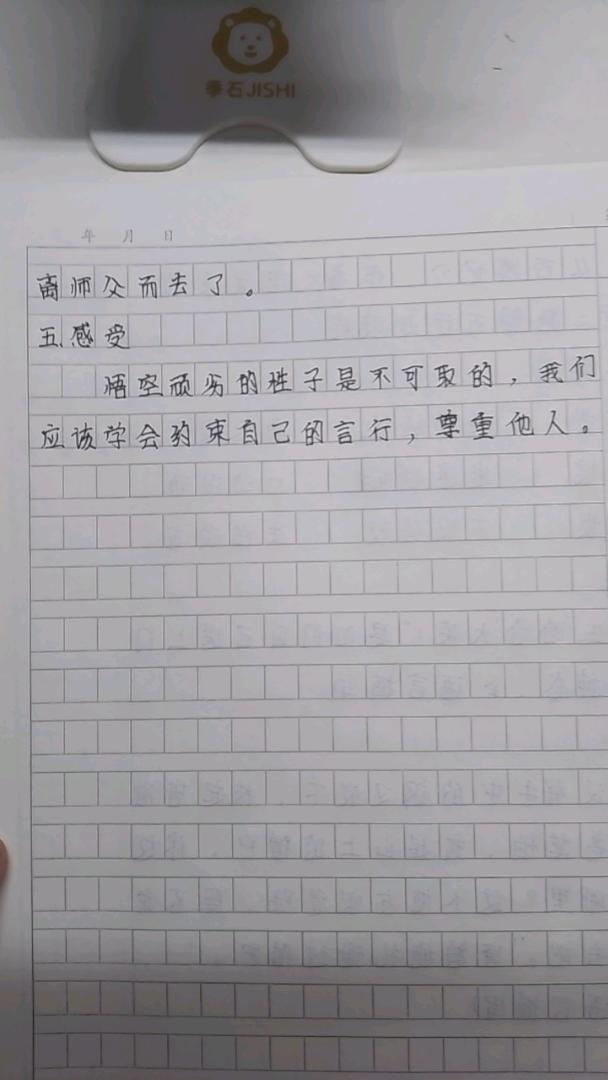 季石JISHI
年 月 日
离师父而去了。
五感受
悟空顽劣的性子是不可取的，我们
应该学会约束自己的言行，尊重他人。